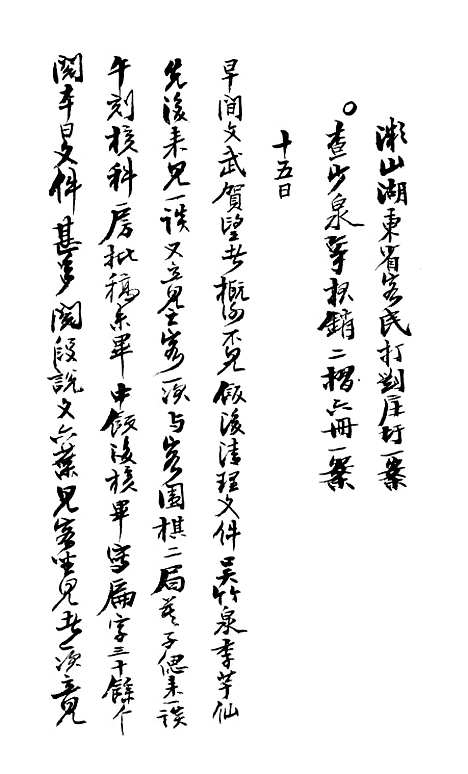 微山湖東省客民打劉庄圩一案
○查少泉軍核銷二摺六冊一案
十五日
早間文武賀望者概不見飯後清理文件吳竹泉李芋仙
先後来見一談又立見之客一次与客圍棋二局莫子偲来一談
午刻核科房批稿未畢中飯後核畢寫扁字三十餘个
閱本日文件甚多閱段說文六葉見客坐見者一次立見